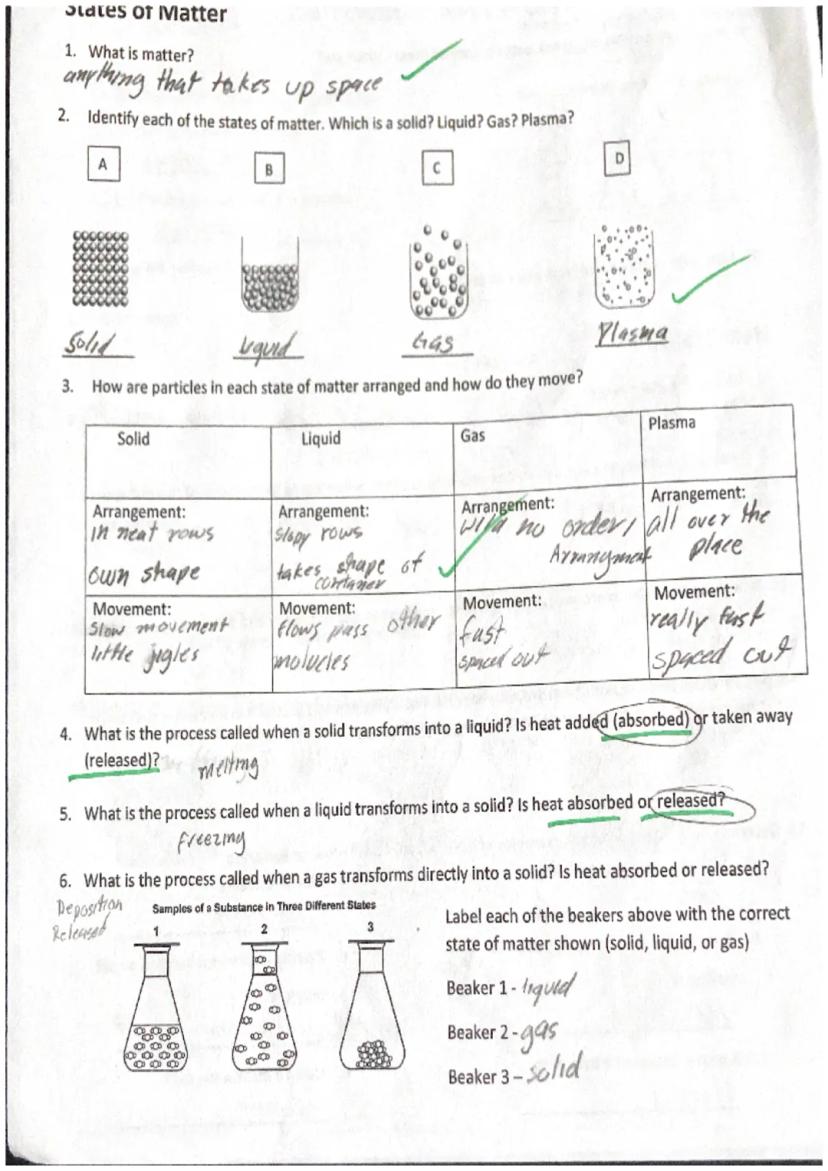 States of Matter
1. What is matter?
anything that takes up space
2. Identify each of the states of matter. Which is a solid? Liquid? Gas? Plasma?
A B C D
Solid liquid Gas Plasma
3. How are particles in each state of matter arranged and how do they move?
Solid Liquid Gas Plasma
Arrangement:
in neat rows
own shape
Arrangement:
slopy rows
takes shape of
container
Arrangement:
no order,
Arrangment
Arrangement:
all over the
place
Movement:
Slow movement
little jigles
Movement:
flows pass other
molucles
Movement:
fast
spaced out
Movement:
really fast
spaced out
4. What is the process called when a solid transforms into a liquid? Is heat added (absorbed) or taken away
(released)? melting
5. What is the process called when a liquid transforms into a solid? Is heat absorbed or released?
freezing
6. What is the process called when a gas transforms directly into a solid? Is heat absorbed or released?
Deposition
Released
Samples of a Substance in Three Different States
1 2 3
Label each of the beakers above with the correct
state of matter shown (solid, liquid, or gas)
Beaker 1 - liquid
Beaker 2 - gas
Beaker 3 – solid